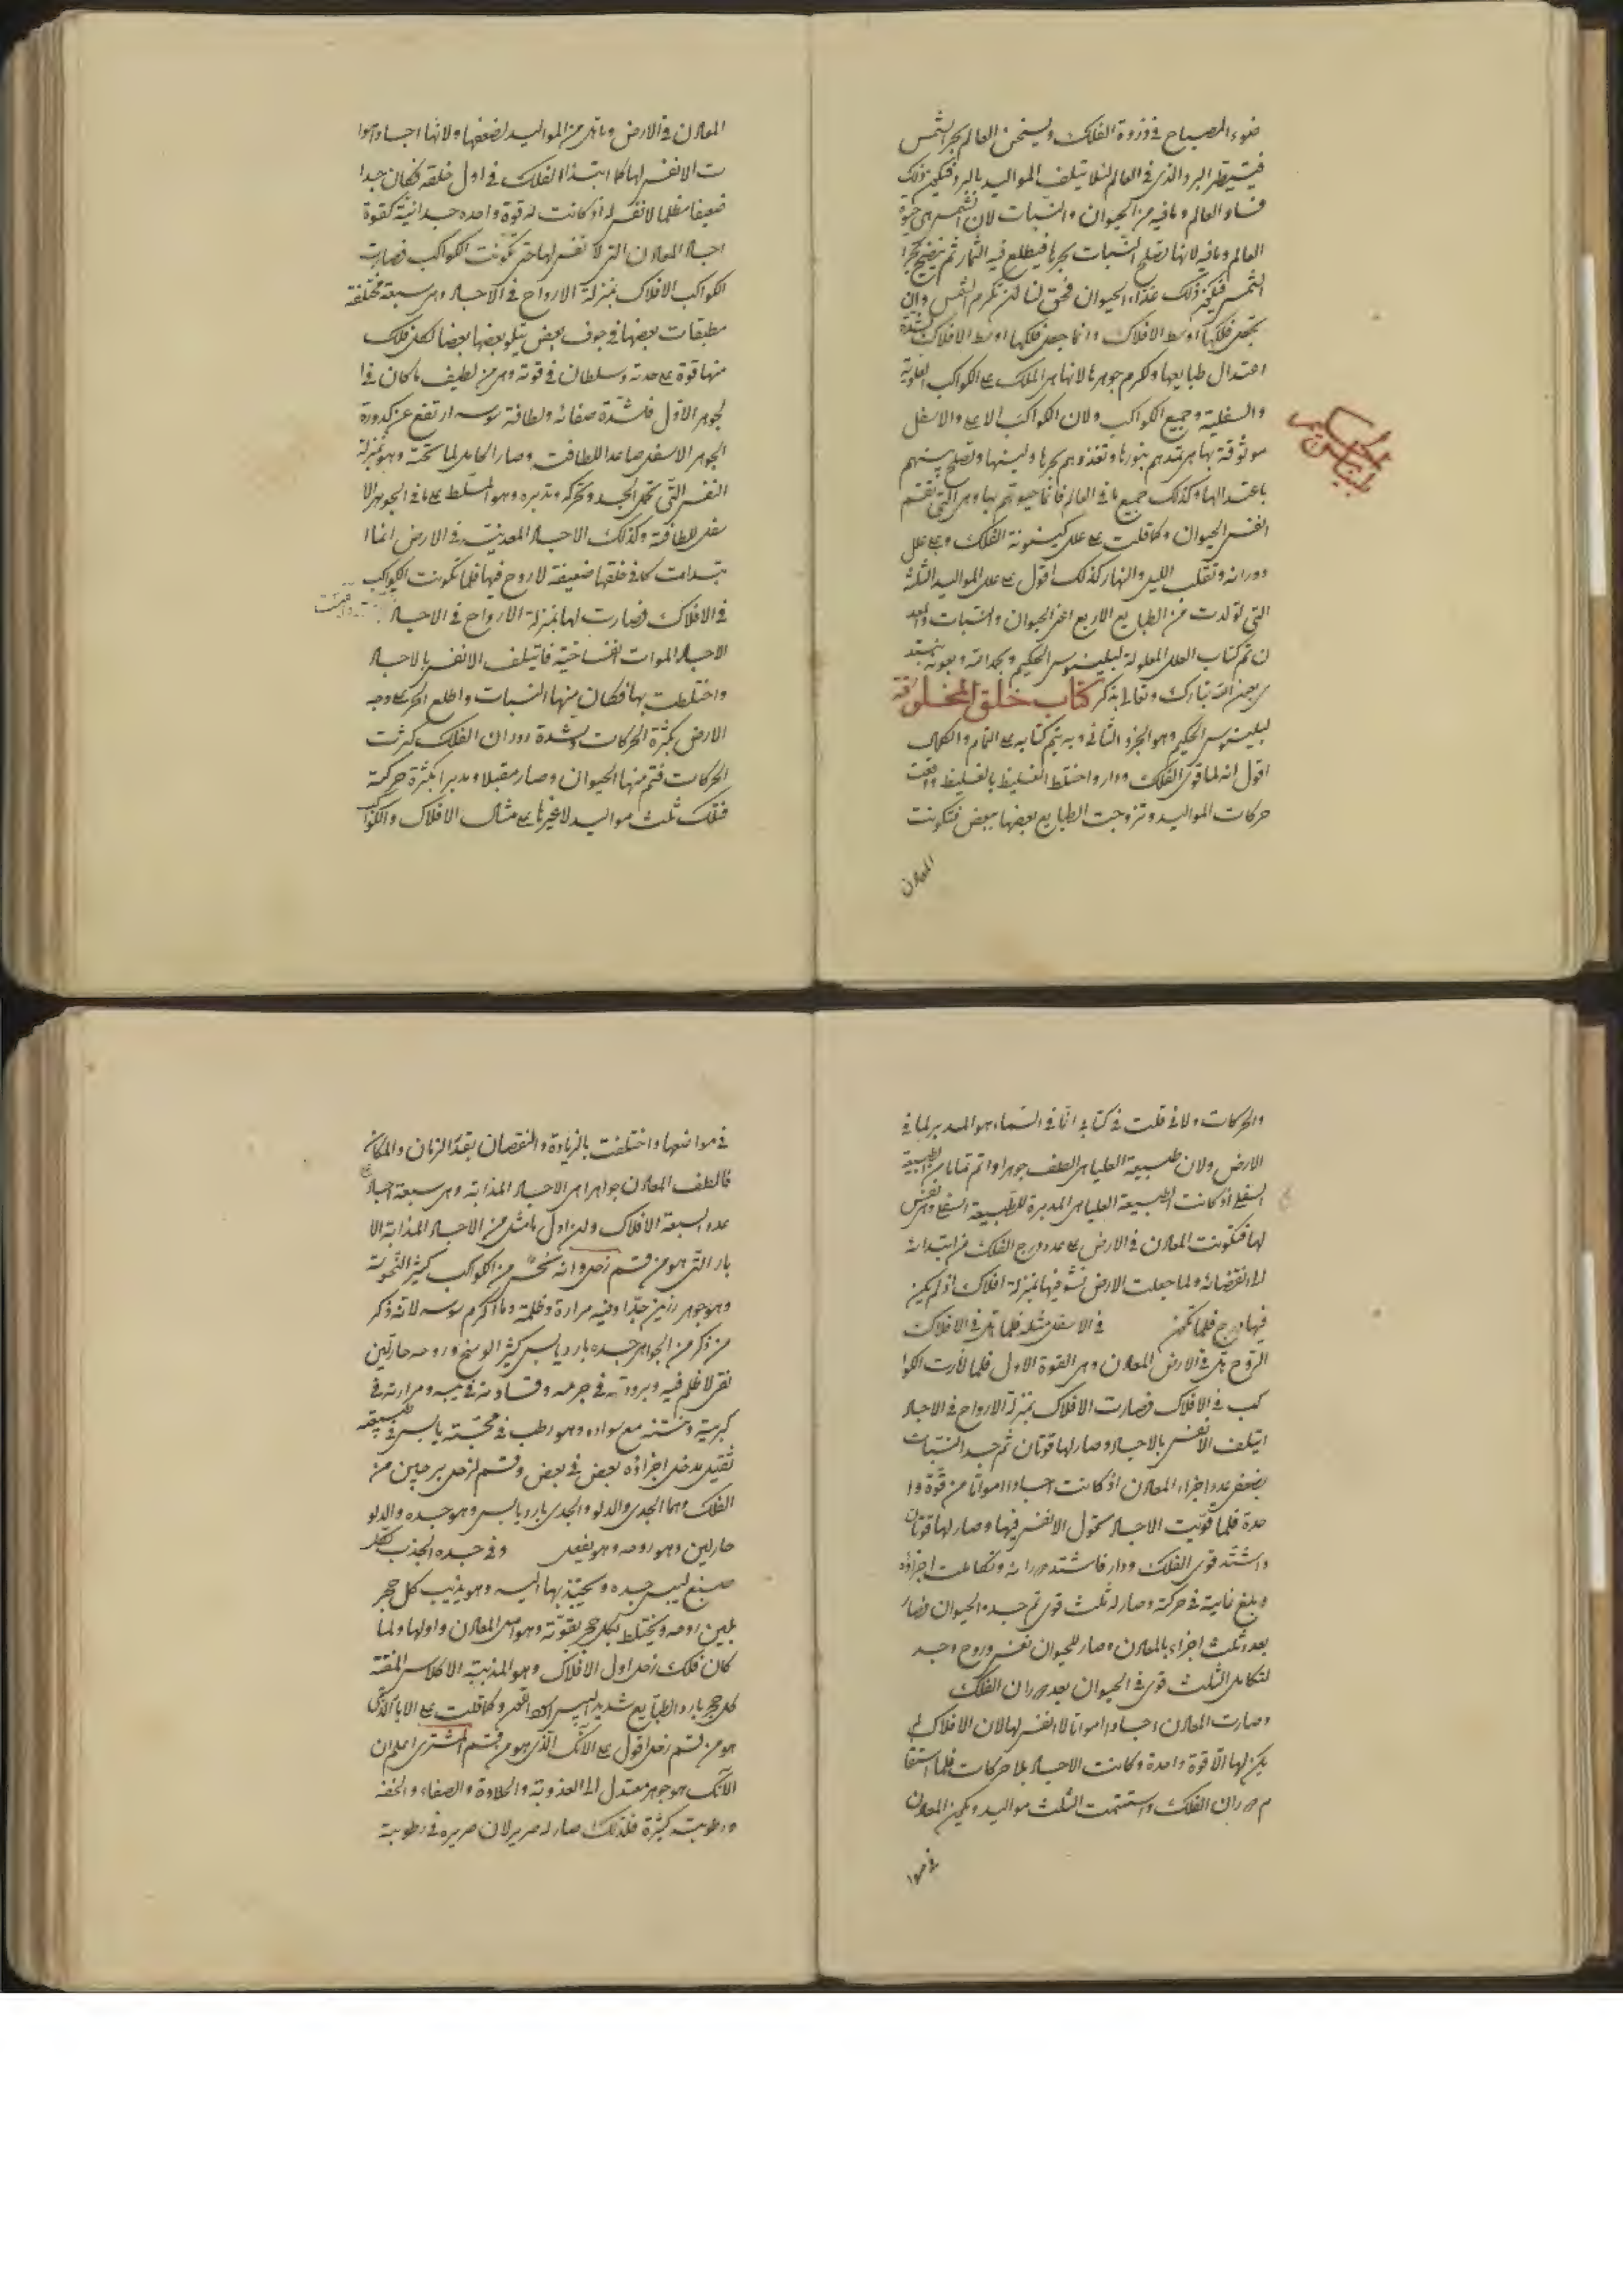 ضوء المصباح في ذروة الفلك ويسخن العالم بحر الشمس
البرد الذي في العالم لئلا يتلف المواليد بالبرد فيكون ذلك
فساد العالم وما فيه من الحيوان والنبات لان الشمس هي حيوة
العالم وما فيه لانها تصلح النبات بحرها فيطلع فيه الثمار ثم ينضج بحر
الشمس فيكون ذلك غذاء الحيوان فحق لنا ان نكرم الشمس وان
نجعل فلكها اوسط الافلاك وانما جعل فلكها اوسط الافلاك لشدة
اعتدال طبايعها ولكرم جوهرها لانها هي الملك على الكواكب العلوية
والسفلية وجميع الكواكب ولان الكواكب الاعلى والاسفل
موثوقة بها هي تمدهم بنورها وتغذوهم بحرها ولينها وتصلح بينهم
باعتدالها وكذلك جميع ما في العالم فانما حيوتهم بها وهي التي تقسم
انفس الحيوان وكما قلت على علل كينونة الفلك وعلى علل
دورانه وتقلب الليل والنهار كذلك اقول على علل المواليد الثلثة
التي تولدت من الطبايع الاربع اعني الحيوان والنبات والمعد
ن تم كتاب العلل المعلولة لبلينوس الحكيم وبحمد الله وعونه نبتد
ى بعون الله تبارك وتعالى بذكر كتاب خلق المخلوقة
لبلينوس الحكيم وهو الجزء الثاني وبه يتم كتابه على التمام والكمال
اقول انه لما قوى الفلك ودار واختلط الغليظ بالغليظ
حركات المواليد وتزوجت الطبايع بعضها ببعض فتكونت
المعادن
المعادن في الارض وما هي من المواليد لضعفها ولانها اجساد اموا
ت لا انفس لها كما ابتدا الفلك في اول خلقه فكان جدا
ضعيفا مظلما لا نفس له اذ كانت له قوة واحدة جسدانية كقوة
اجساد المعادن التي لا نفس لها حتى تكونت الكواكب فصارت
الكواكب للافلاك بمنزلة الارواح في الاجساد وهي سبعة مختلفة
مطبقات بعضها في جوف بعض يتلو بعضها بعضا لكل فلك
منها قوة على حدته وسلطان في قوته وهي من لطيف ما كان في ا
لجوهر الاول فلشدة صفائه ولطافة ارتفع عن كدورة
الجوهر الاسفل صاعدا للطافته وصار الحامل لما تحته وهو بمنزلة
النفس التي تحمل الجسد وتحركه وتدبره وهو المسلط على ما في الجوهر الا
سفل للطافته وكذلك الاجساد المعدنية في الارض انما ا
بتدات في خلقها ضعيفة لا روح فيها فلما تكونت الكواكب
في الافلاك فصارت لها بمنزلة الارواح في الاجساد
الاجساد الموات فايتلف الانفس بالاجساد
واختلطت بها فكان منها النبات واطلع الحر على وجه
الارض بكثرة الحركات ولشدة دوران الفلك كثرت
الحركات فتم منها الحيوان وصار مقبلا ومدبرا بكثرة حركته
فتلك ثلث مواليد لا غيرها على مثال الافلاك والكواكب
والحركات ولاني قلت في كتابي ان ما في السماء هو المدبر لما في
الارض ولان طبيعة العليا هي الطف جوهرا واتم تماما من الطبيعة
السفلى اذ كانت الطبيعة العليا هي المدبرة للطبيعة السفلى وهي نفس
لها فتكونت المعادن في الارض على عدد درج الفلك من ابتدائه
الى انقضائه ولما جعلت الارض بمنزلة افلاك اذ لم يكن
فيها درج فلما في الاسفل مثله فلما في الافلاك
الروح في الارض المعادن وهي القوة الاولى فلما دارت الكوا
كب في الافلاك فصارت الافلاك بمنزلة الارواح في الاجساد
ايتلف الانفس بالاجساد وصار لها قوتان ثم جسد النبات
بضعفى عدد اجزاء المعادن اذ كانت اجسادا امواتا من قوة وا
حدة فلما قويت الاجساد بدخول الانفس فيها وصار لها قوتان
واشتد قوى الفلك ودار فاشتد دورانه وتكاملت اجزاؤه
وبلغ غايته في حركته وصار له ثلث قوى تم جسد الحيوان فصار
بعدد ثلث اجزاء بالمعادن وصار للحيوان نفس وروح وجسد
لتكامل الثلث قوى في الحيوان بعد دوران الفلك
وصارت المعادن اجسادا امواتا لا انفس لها لان الافلاك لم
يكن لها الا قوة واحدة وكانت الاجساد بلا حركات فلما استقا
م دوران الفلك واستتمت الثلث مواليد وتكون المعادن
في مواضعها
في مواضعها واختلفت بالزيادة والنقصان بقدر الزمان والمكان
فالطف المعادن جواهرا هي الاجساد المذابة وهي سبعة اجساد على
عدد السبعة الافلاك وان اول ما نبتدئ من الاجساد المذابة الا
بار التي هو من قسم زحل وانه نحس من الكواكب كثير النحوسة
وهو جوهر رزين جدا وفيه مرارة وظلمة وما اكرم لانه ذكر
من ذكر من الجواهر جسده بارد يابس كثير الوسخ وروحه حار لين
نقي لا ظلم فيه وبرودته في جرمه وفساده في يبسه ومرارته في
كبريته ونتنه مع سواده وهو رطب في مجسته يابس في طبيعته
ثقيل مدخل اجزاؤه بعض في بعض وقسم لزحل برجين من
الفلك وهما الجدي والدلو والجدي بارد يابس وهو جسده والدلو
حار لين وهو روحه وهو يفعل وفي جسده الجذب لكل
صبغ ليبس جسده ويجتذبها اليه وهو يذيب كل حجر
بلين روحه ويختلط بكل حجر بقوته وهو اصل المعادن واولها ولما
كان فلك زحل اول الافلاك وهو
كل حجر بارد الطبايع شديد اليبس اسود اللون وكما قلت على الابار الذي
هو من قسم زحل اقول على الآنك الذي هو من قسم المشتري اعلم ان
الآنك هو جوهر معتدل الى العذوبة والحلاوة والصفاء والخفة
ورطوبته كثيرة فلذلك صار له صرير لان صريره في رطوبته